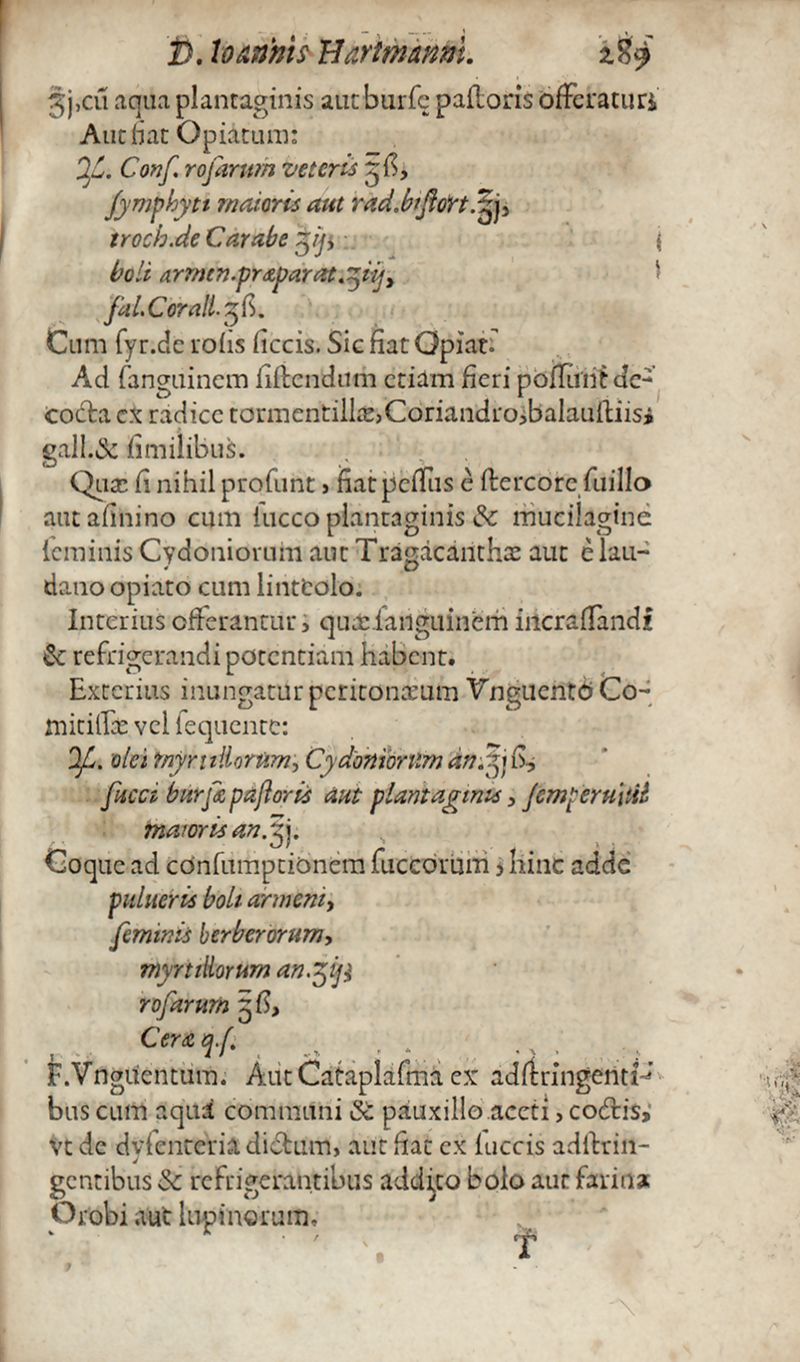 D. Ioannis Hartmanni. 289
℥j,cū aqua plantaginis aut burſę paſtoris offeratur;
Aut fiat Opiatum:
℞. Conſ. roſarum veteris ℥ß,
ſymphyti maioris aut rad.biſtort.℥j,
troch.de Carabe ʒij,
boli armen.præparat.ʒiij,
ſal.Corall.ʒß.
Cum ſyr.de roſis ſiccis. Sic fiat Opiat.
Ad ſanguinem ſiſtendum etiam fieri poſſunt de-
cocta ex radice tormentillæ,Coriandro,balauſtiis,
gall.& ſimilibus.
Quæ ſi nihil proſunt, fiat peſſus è ſtercore ſuillo
aut aſinino cum ſucco plantaginis & mucilagine
ſeminis Cydoniorum aut Tragacanthæ aut è lau-
dano opiato cum linteolo.
Interius offerantur, quæ ſanguinem incraſſandi
& refrigerandi potentiam habent.
Exterius inungatur peritonæum Vnguento Co-
mitiſſæ vel ſequente:
℞. olei myrtillorum, Cydoniorum an.℥j ß,
ſucci burſæ paſtoris aut plantaginis, ſemperuiui
maioris an.℥j.
Coque ad conſumptionem ſuccorum, hinc adde
pulueris boli armeni,
ſeminis berberorum,
myrtillorum an.ʒij,
roſarum ʒß,
Ceræ q.ſ.
F.Vnguentum. Aut Cataplaſma ex adſtringenti-
bus cum aqua communi & pauxillo aceti, coctis,
vt de dyſenteria dictum, aut fiat ex ſuccis adſtrin-
gentibus & refrigerantibus addito bolo aut farina
Orobi aut lupinorum.
T